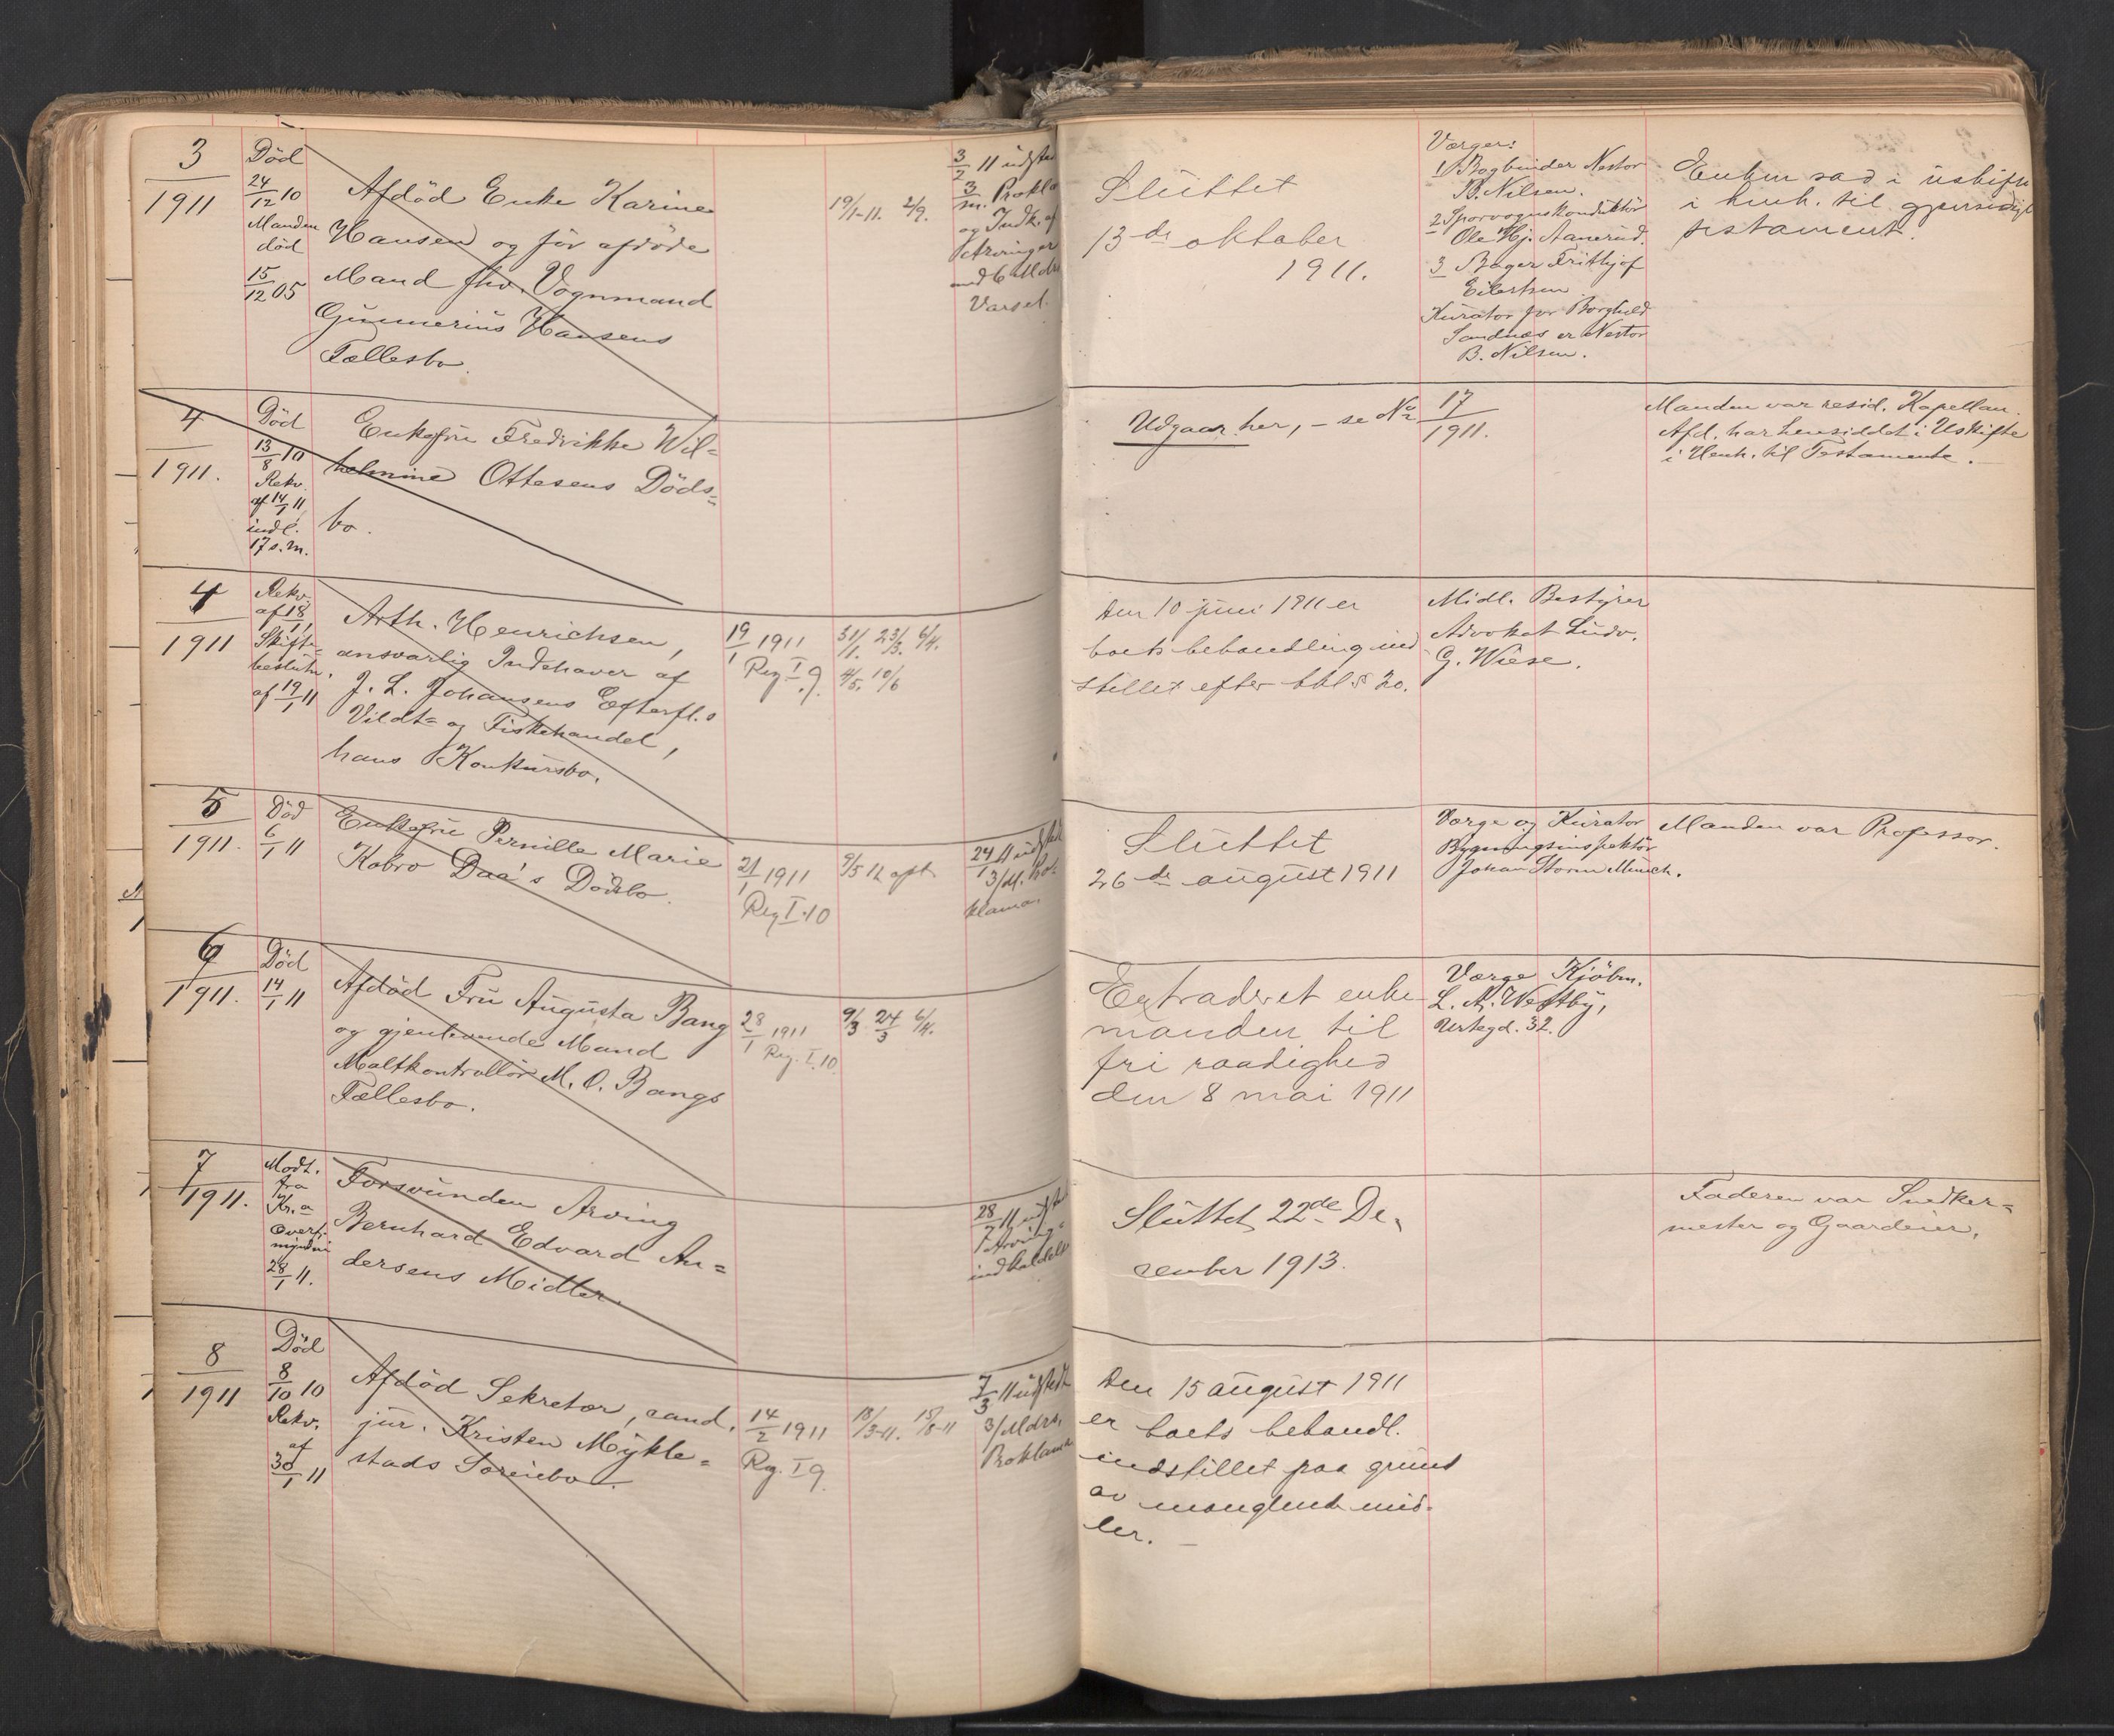 3
1911
Död
24/12 10
Manden
död
15/12 05
Afdöd Enke Karine
Hansen og før afdöde
Mand fhv. Vognmand
Gunnerius Hansens
Fællesbo.
19/1-11. 2/9.
3/2 11 udsted
3/m. Prokla
og Indk. af
Arvinger
med 6 Mdrs
Varsel.
Sluttet
13de oktober
1911.
Værger:
1 Bogbinder Nestor
B. Nilsen.
2 Sporvognskonduktör
Ole Hj. Aanerud.
3 Bager Frithjof
Eilertsen
Kurator for Borghild
Sandnæs er Nestor
B. Nilsen.
Enken sad i uskifte
i henh. til gjensidigt
testament.
4
1911.
Död
13/8 10
Rekv.
af 14/1 11,
indl.
17 s. m.
Enkefru Fredrikke Wil=
helmine Ottesens Döds=
bo.
Udgaar her, – se No 17/1911.
Manden var resid. Kapellan.
Afd. har hensiddet i Uskifte
i Henh. til Testamente.
4
1911
Rekv.
af 18/1 11
Skifte=
beslutn.
af 19/1 11
Arth. Henrichsen,
ansvarlig Indehaver af
J. L. Johansens Efterfl.s
Vildt= og Fiskehandel,
hans Konkursbo.
19/1 1911
Reg I. 9.
31/1. 23/3. 6/4.
4/5. 10/6
Den 10 juni 1911 er
boets behandling ind
stillet efter kkl § 20.
Midl. Bestyrer
Advokat Ludv.
G. Wiese.
5
1911.
Död
6/1 11
Enkefru Pernille Marie
Kobro Daa's Dödsbo.
21/1 1911
Reg I. 10
9/5 12 opt.
24/1 11 udsted
3/M. Pro=
klama.
Sluttet
26de august 1911
Værge og Kurator
Bygningsinspektör
Johan Storm Munch.
Manden var Professor.
6
1911.
Död
14/1 11
Afdöd Fru Augusta Bang
og gjenlevende Mand
Maltkontrollör M. O. Bangs
Fællesbo.
28/1 1911
Reg. I. 10.
9/3 24/3 6/4.
Extraderet enke
manden til
fri raadighed
den 8 mai 1911
Værge Kjöbm.
L. A. Westby,
Urtegd. 32.
7
1911.
Modt.
fra
Kr.a
Overf.
mynderi
28/1 11.
Forsvunden Arving
Bernhard Edvard An=
dersens Midler.
28/7 11 udsted
Arving=
indkaldelse
Sluttet 22de De=
cember 1913.
Faderen var Snedker=
mester og Gaardeier.
8
1911
Död
8/10 10
Rekv.
af
30/1 11
Afdöd Sekretær, cand.
jur. Kristen Mykle=
stads Soreiebo.
14/2 1911
Reg. I 9.
18/3-11. 15/8-11
7/3 11 udstedt
3/Mdrs.
Proklama
Den 15 august 1911
er boets behandl.
indstillet paa grund
av manglende mid=
ler. –